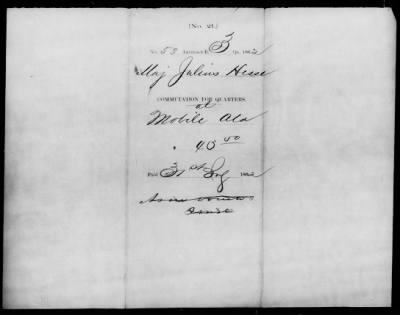 (No. 21.)
No. 53 Abstract B, 3 Qr. 1862
Maj Julius Hesse
COMMUTATION FOR QUARTERS.
at
Mobile Ala
40 00
Paid 31st Aug 1862